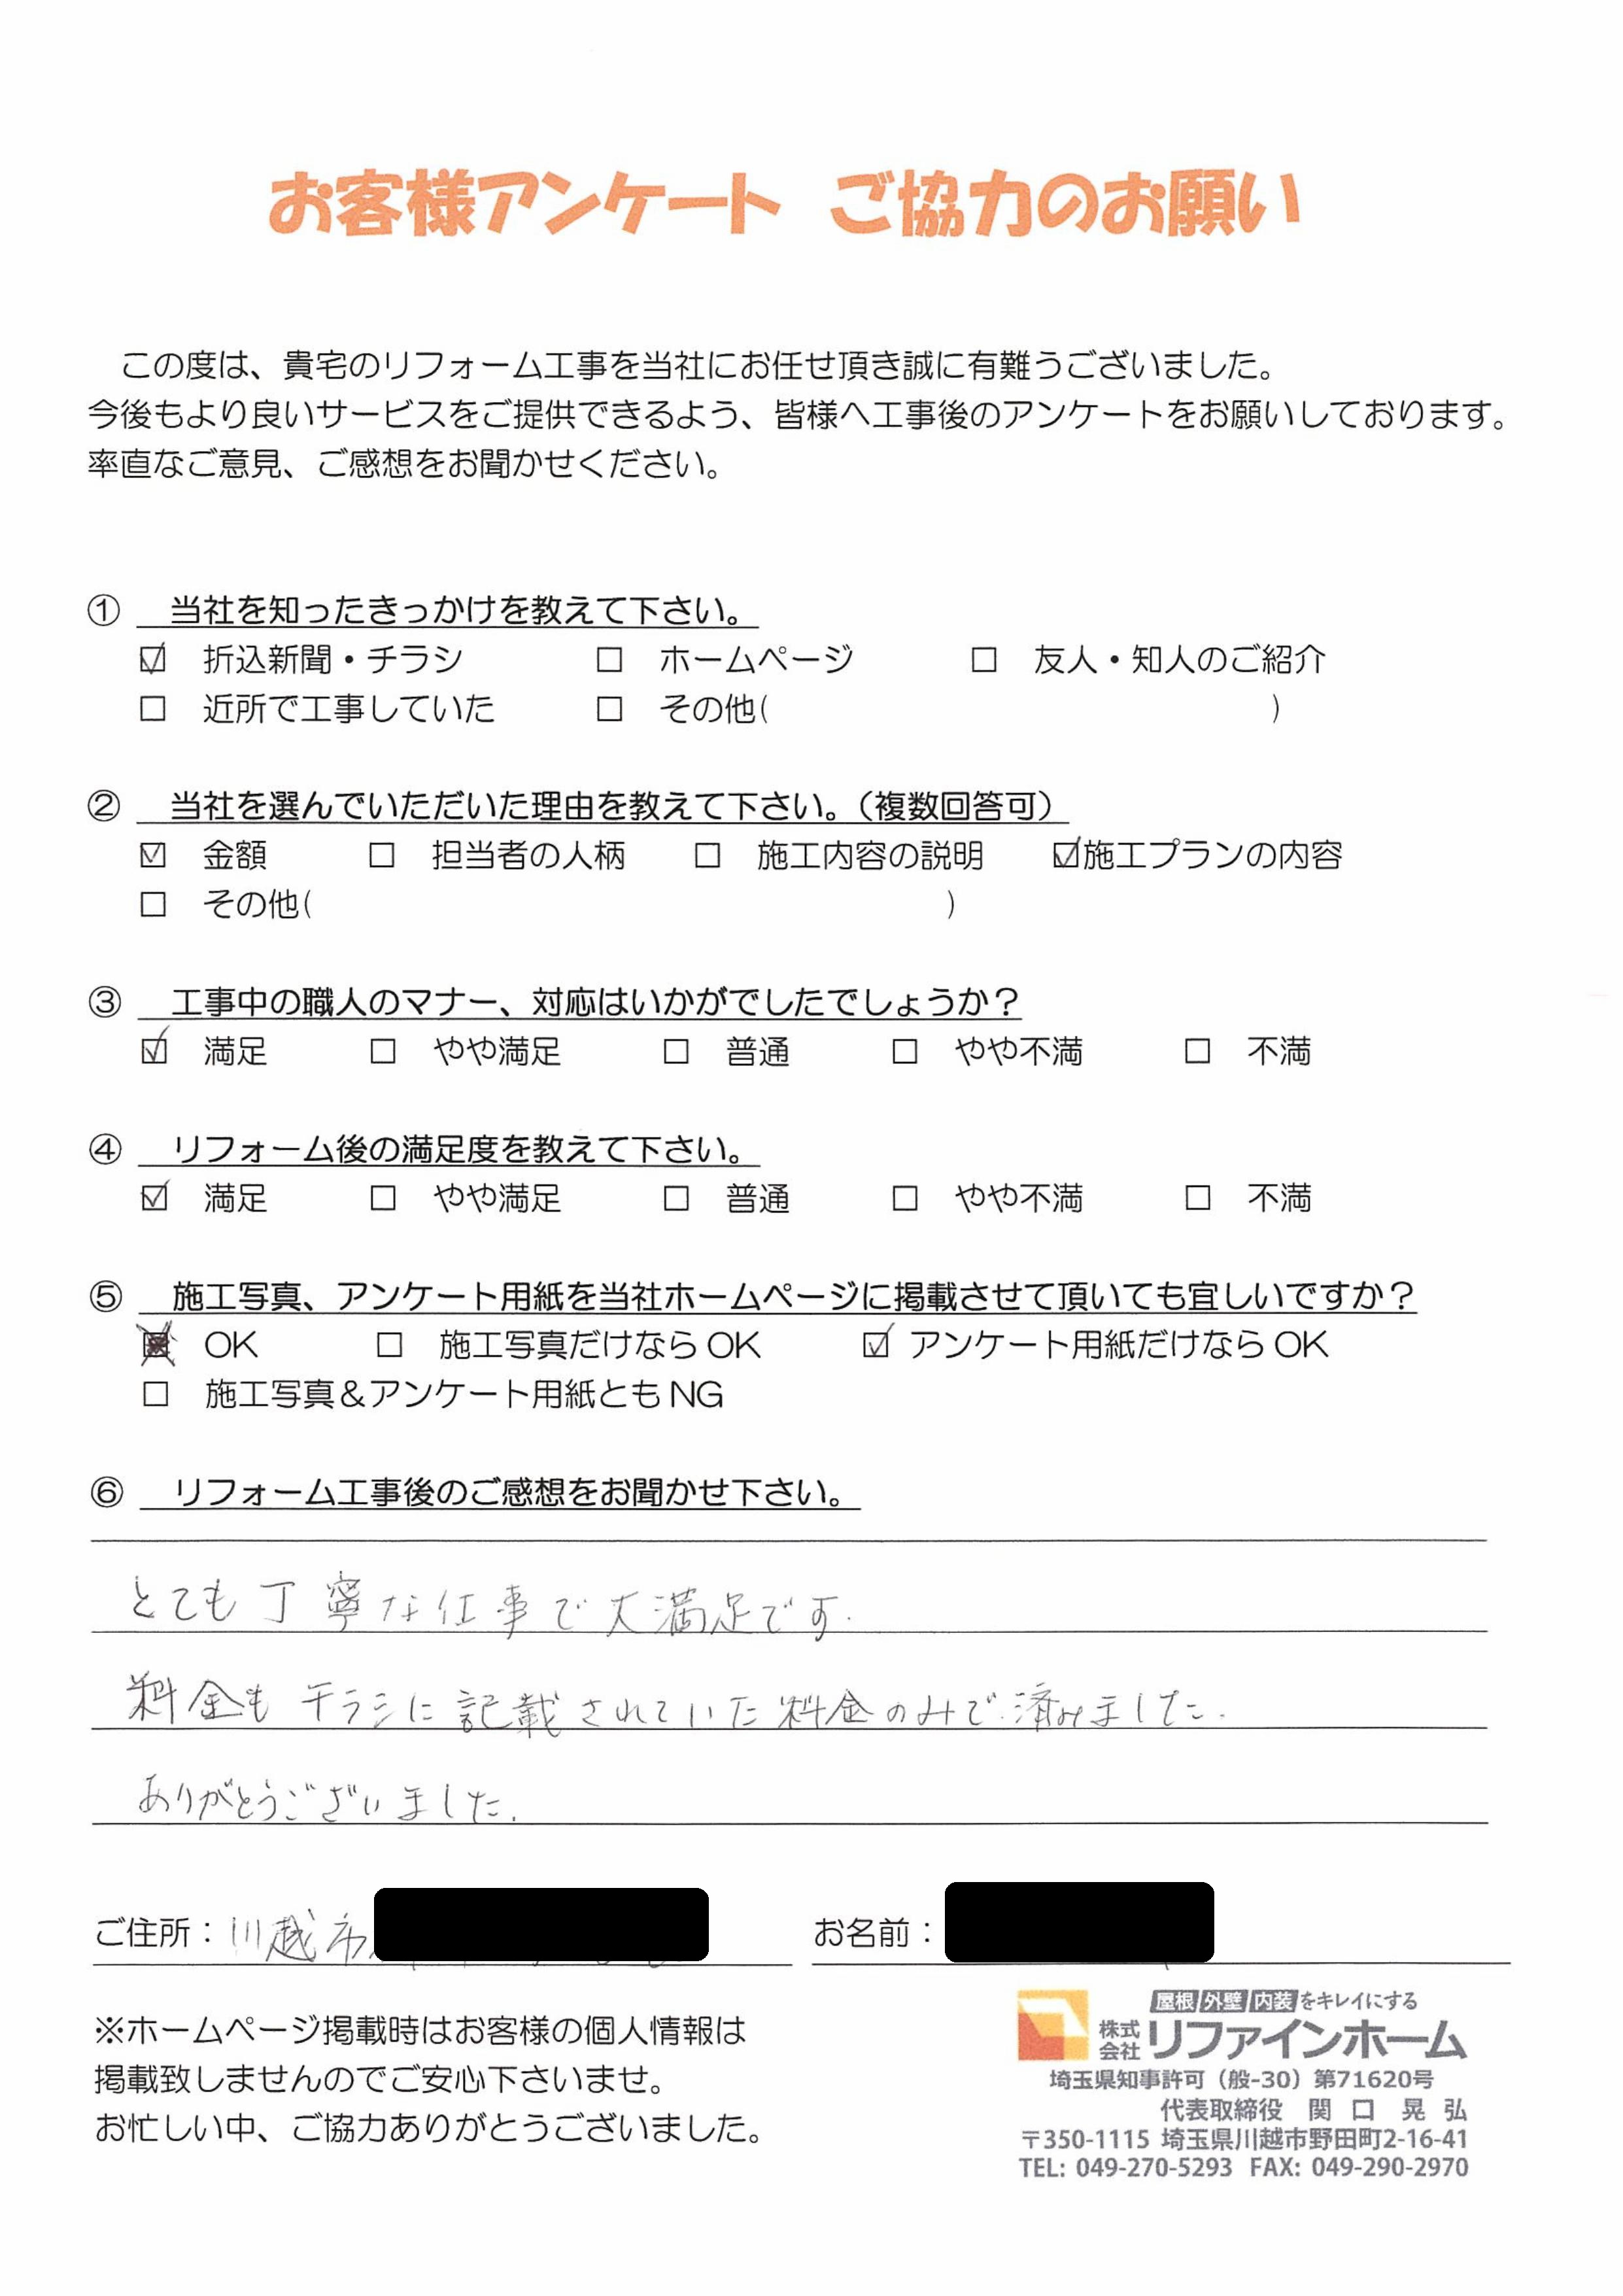 お客様アンケート ご協力のお願い
この度は、貴宅のリフォーム工事を当社にお任せ頂き誠に有難うございました。
今後もより良いサービスをご提供できるよう、皆様へ工事後のアンケートをお願いしております。
率直なご意見、ご感想をお聞かせください。
① 当社を知ったきっかけを教えて下さい。
☑ 折込新聞・チラシ □ ホームページ □ 友人・知人のご紹介
□ 近所で工事していた □ その他( )
② 当社を選んでいただいた理由を教えて下さい。(複数回答可)
☑ 金額 □ 担当者の人柄 □ 施工内容の説明 ☑施工プランの内容
□ その他( )
③ 工事中の職人のマナー、対応はいかがでしたでしょうか?
☑ 満足 □ やや満足 □ 普通 □ やや不満 □ 不満
④ リフォーム後の満足度を教えて下さい。
☑ 満足 □ やや満足 □ 普通 □ やや不満 □ 不満
⑤ 施工写真、アンケート用紙を当社ホームページに掲載させて頂いても宜しいですか?
☒ OK □ 施工写真だけなら OK ☑ アンケート用紙だけなら OK
□ 施工写真&アンケート用紙とも NG
⑥ リフォーム工事後のご感想をお聞かせ下さい。
とても丁寧な仕事で大満足です.
料金もチラシに記載されていた料金のみで済みました.
ありがとうございました.
ご住所:川越市 お名前:
※ホームページ掲載時はお客様の個人情報は
掲載致しませんのでご安心下さいませ。
お忙しい中、ご協力ありがとうございました。
屋根 外壁 内装 をキレイにする
株式会社 リファインホーム
埼玉県知事許可(般-30)第71620号
代表取締役 関口 晃弘
〒350-1115 埼玉県川越市野田町2-16-41
TEL: 049-270-5293 FAX: 049-290-2970